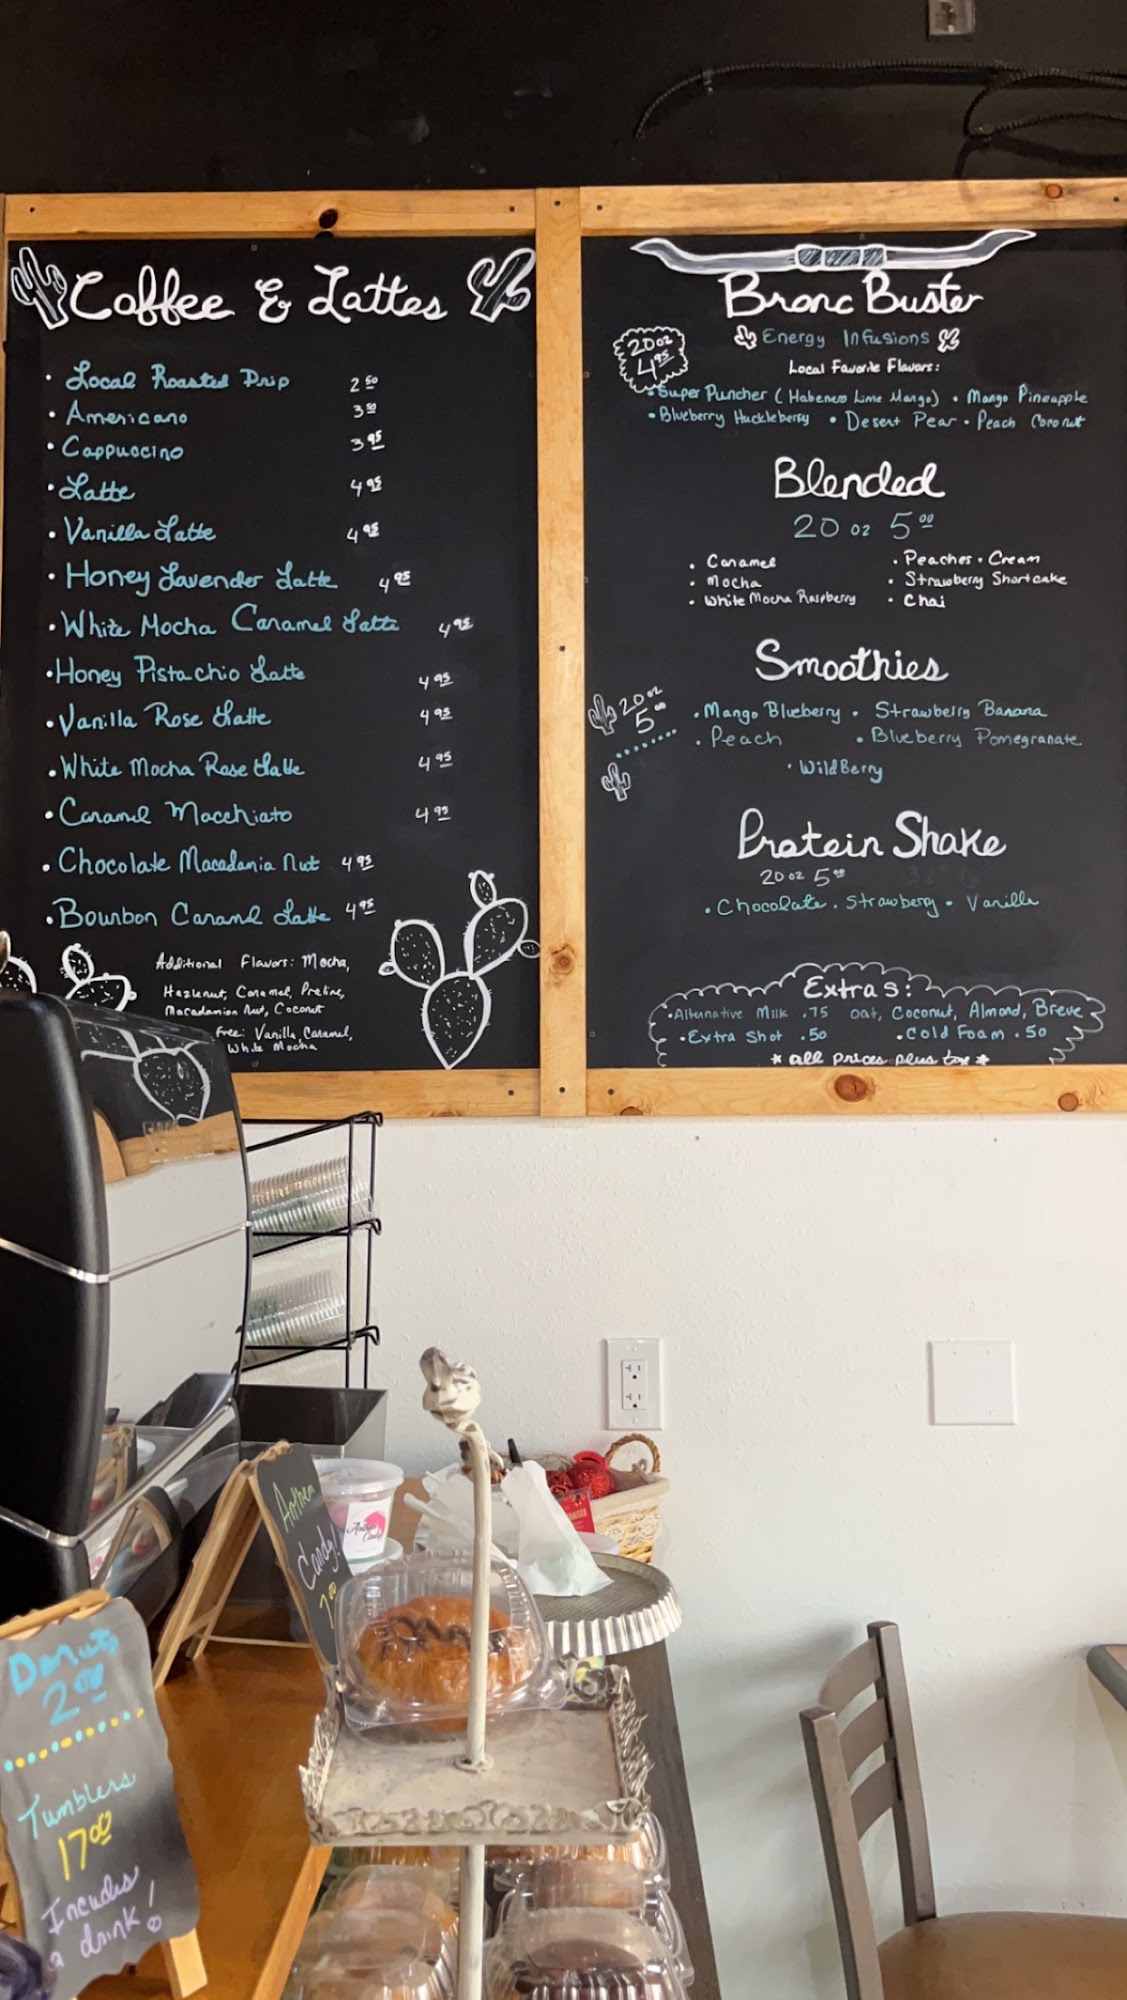 Coffee & Lattes
• Local Roasted Drip 2 50
• Americano 3 50
• Cappuccino 3 95
• Latte 4 95
• Vanilla Latte 4 95
• Honey Lavender Latte 4 95
• White Mocha Caramel Latte 4 95
• Honey Pistachio Latte 4 95
• Vanilla Rose Latte 4 95
• White Mocha Rose Latte 4 95
• Caramel Macchiato 4 95
• Chocolate Macadamia Nut 4 95
• Bourbon Caramel Latte 4 95
Additional Flavors: Mocha,
Hazlenut, Caramel, Praline,
Macadamian Nut, Coconut
Free: Vanilla, Caramel,
White Mocha
Bronc Buster
Energy Infusions
20 oz
4 95
Local Favorite Flavors:
• Super Puncher (Habenero Lime Mango) • Mango Pineapple
• Blueberry Huckleberry • Desert Pear • Peach Coconut
Blended
20 oz 5 00
• Caramel • Peaches • Cream
• Mocha • Strawberry Shortcake
• White Mocha Raspberry • Chai
Smoothies
20 oz
5 00
• Mango Blueberry • Strawberry Banana
• Peach • Blueberry Pomegranate
• WildBerry
Protein Shake
20 oz 5 00
• Chocolate • Strawberry • Vanilla
Extras:
• Alternative Milk .75 Oat, Coconut, Almond, Breve
• Extra Shot .50 • Cold Foam .50
* all prices plus tax *
Candy!
7 00
Donuts
2 00
Tumblers
17 00
Incudes
a drink!